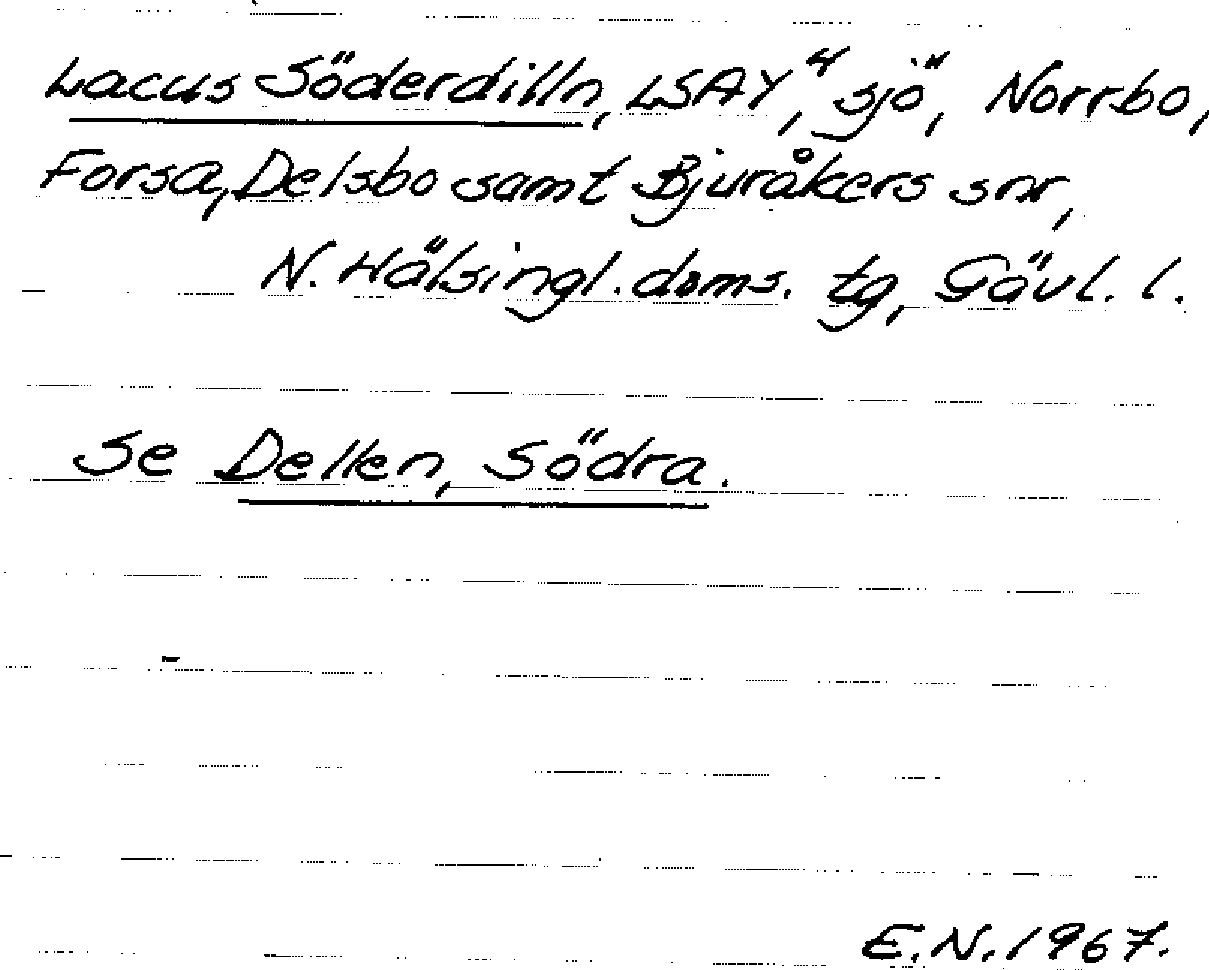 Lacus Söderdilln, LSAY, "sjö", Norrbo,
Forsa, Delsbo samt Bjuråkers snr,
N. Hälsingl. doms. tg, Gävl. l.
Se Dellen, Södra.
E.N. 1967.